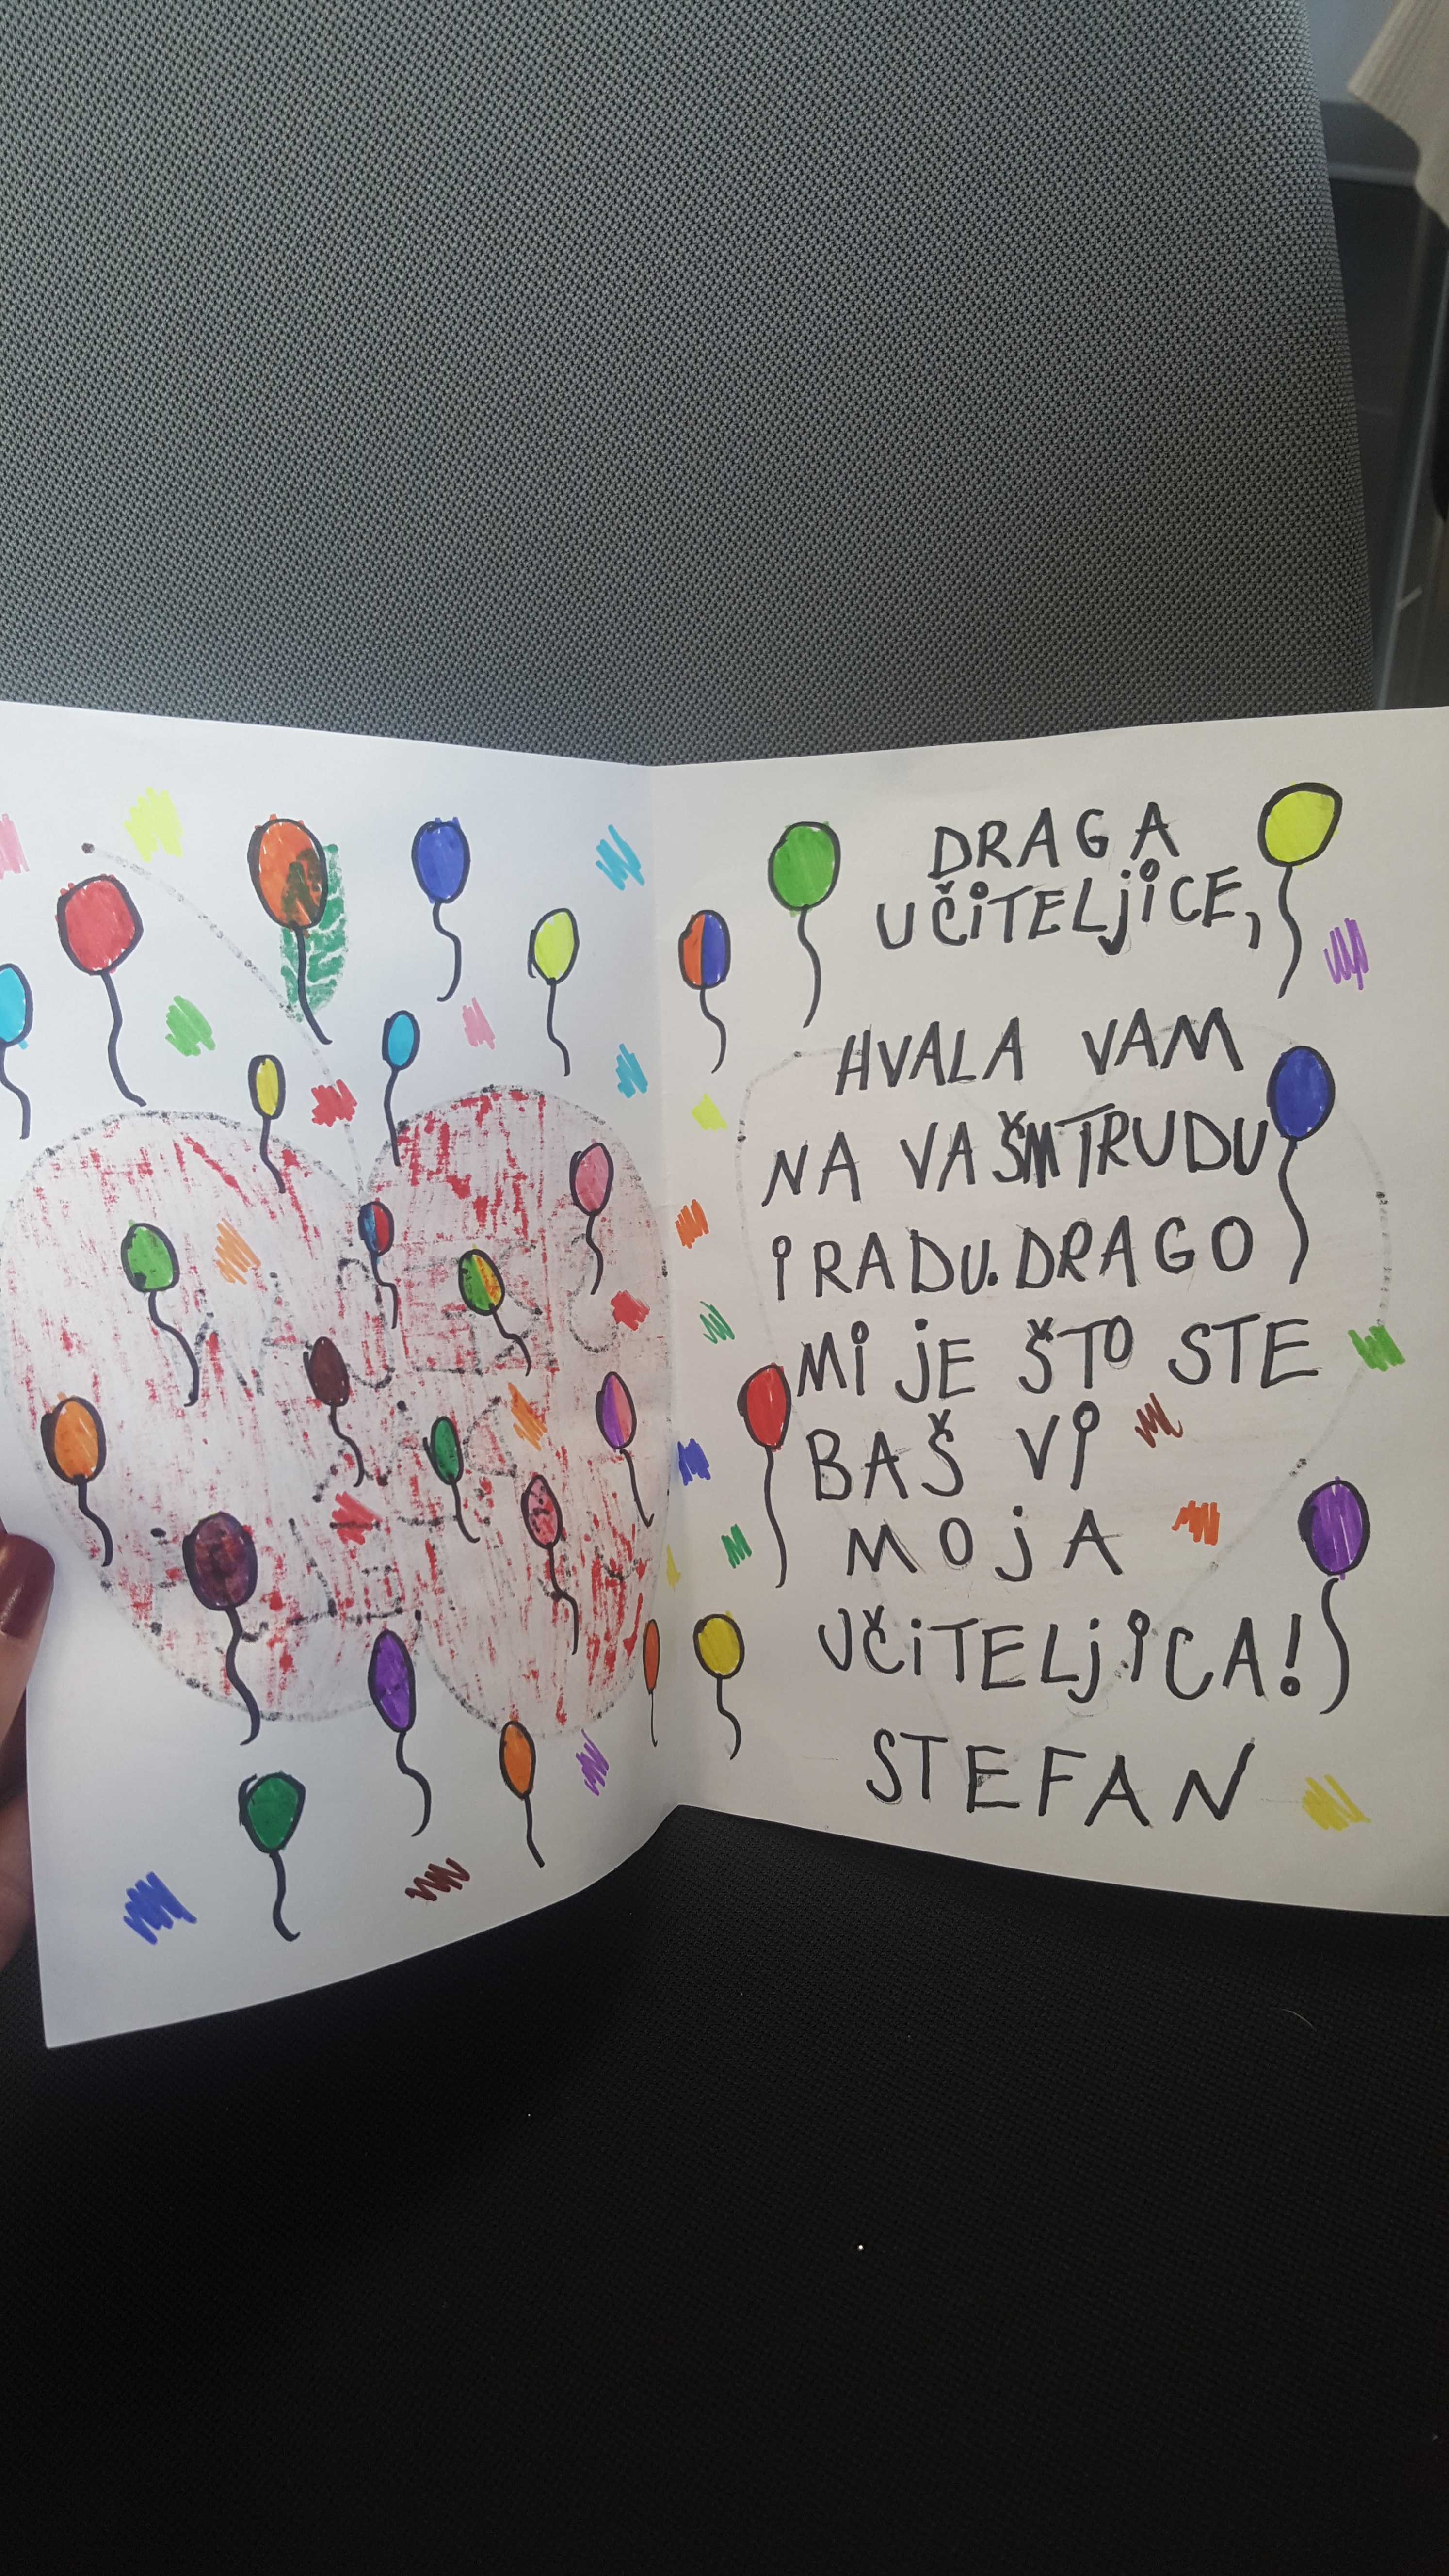 DRAGA
UČiTELjiCE,
HVALA VAM
NA VAŠM TRUDU
i RADU. DRAGO
Mi jE ŠTO STE
BAŠ Vi
MOjA
UČiTELjiCA!
STEFAN